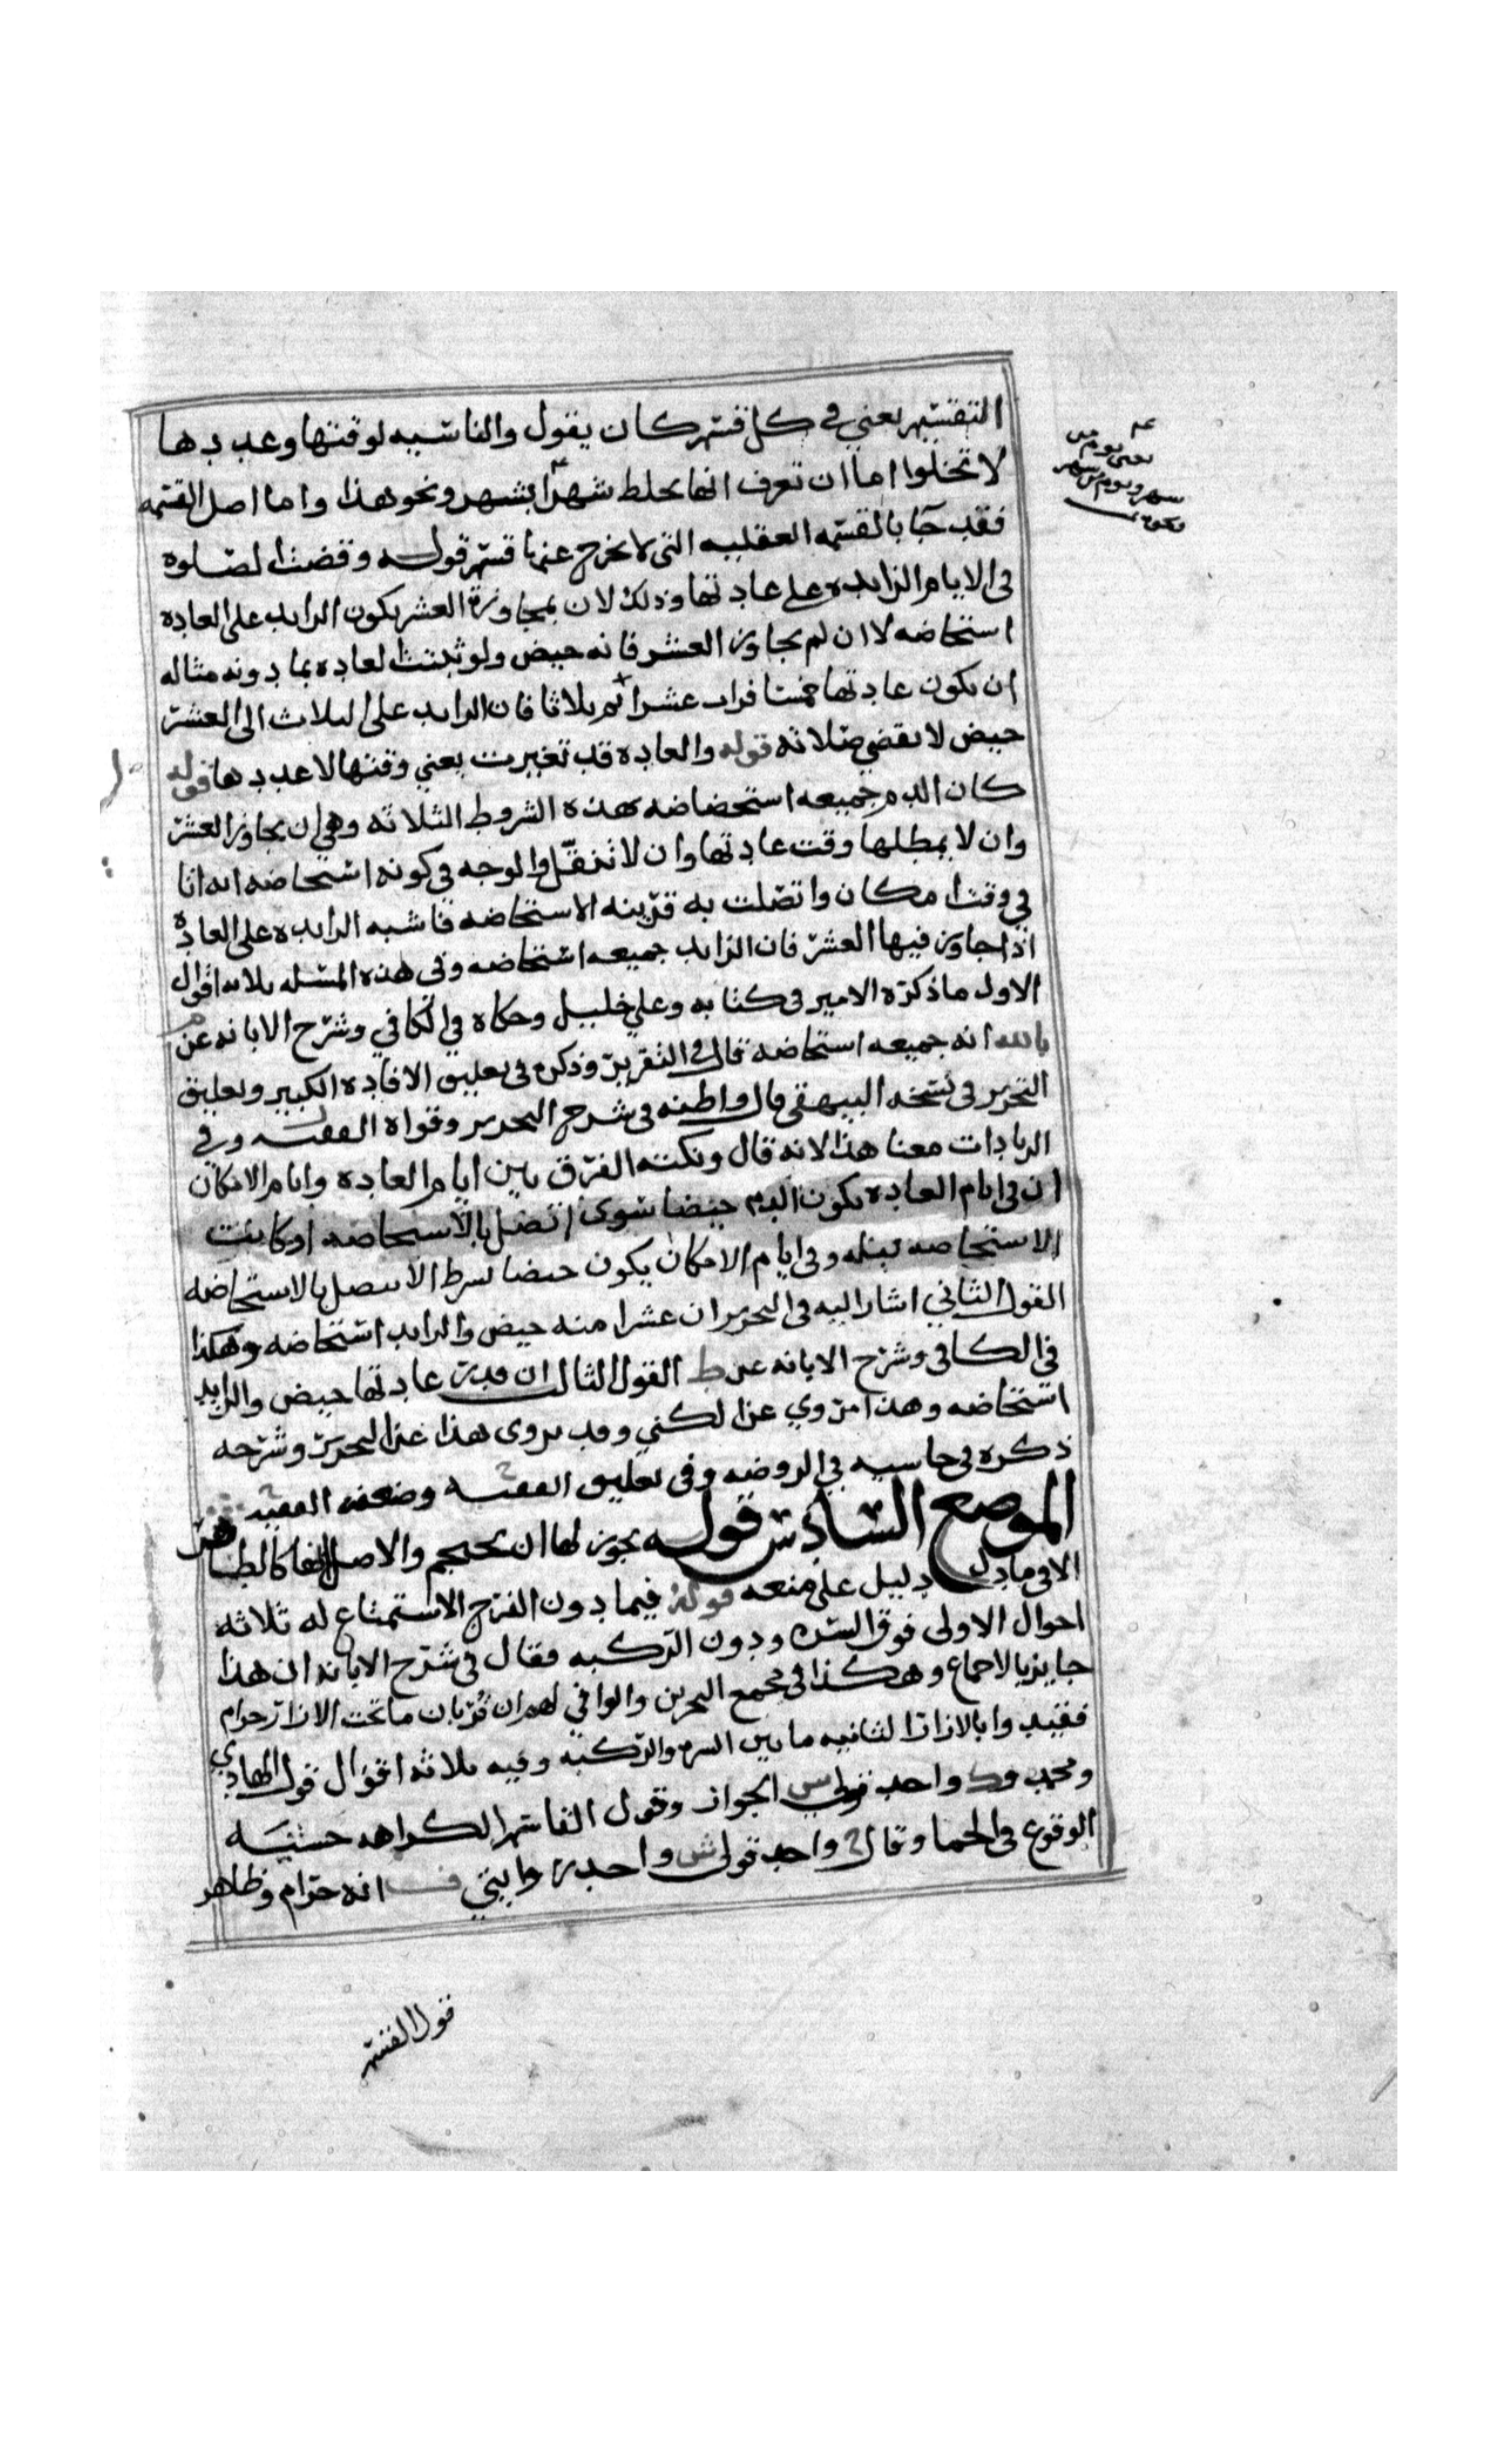 التقسيم يعني في كل قسم كان يقول والناسيه لوقتها وعددها
لا تخلوا اما ان تعرف انها تخلط شهرا بشهر ونحو هذا واما اصل القسمه
فقد جآ بالقسمه العقليه التي لا يخرج عنها قسم قوله وقضت الصلوه
في الايام الزايده على عادتها وذلك لان بمجاوزة العشر يكون الزايد على العاده
استحاضه لا ان لم يجاوز العشر فانه حيض ولو ثبتت العاده بما دونه مثاله
ان يكون عادتها خمسا فرات عشرا ثم ثلاثا فان الزايد على الثلاث الى العشر
حيض لا تقضي صلاته قوله والعاده قد تغيرت يعني وقتها لا عددها قوله
كان الدم جميعه استحضاضه هذه الشروط الثلاثه وهي ان يجاوز العشر
وان لا يمطلها وقت عادتها وان لا تنتقل والوجه في كونه استحاضه انه اتا
في وقت امكان واتصلت به قرينه الاستحاضه فاشبه الزايده على العاده
اذا جاوز فيها العشر فان الزايد جميعه استحاضه وفي هذه المسله ثلاثه اقوال
الاول ما ذكره الامير في كتابه وعلي خليل وحكاه في الكافي وشرح الابانه عن
بالله انه جميعه استحاضه قال في التقرير وذكره في تعليق الافاده الكبير وتعليق
التحرير في نسخه البيهقي قال واظنه في شرح التحرير وقواه الفقيه وفي
الزيادات معنا هذا لانه قال ونكته الفرق بين ايام العاده وايام الامكان
ان في ايام العاده يكون الدم حيضا سوى اتصل بالاستحاضه او كانت
الاستحاضه قبله وفي ايام الامكان يكون حيضا بشرط الا يتصل بالاستحاضه
القول الثاني اشار اليه في التحرير ان عشرا منه حيض والزايد استحاضه وهكذا
في الكافي وشرح الابانه عن ط القول الثالث ان قدر عادتها حيض والزايد
استحاضه وهذا مروي عن الكني وقد يروى هذا عن التحرير وشرحه
ذكره في حاشيه في الروضه وفي تعليق الفقيه وضعفه الفقيه
الموضع السادس قوله يجوز لها ان تحتجم والاصل انها كالطاهر
الا في ما دل دليل على منعه قوله فيما دون الفرج الاستمتاع له ثلاثه
احوال الاولى فوق السره ودون الركبه فقال في شرح الابانه ان هذا
جايز بالاجماع وهكذا في مجمع البحرين والوافي لهم ان قربان ما تحت الازار حرام
فقيدوا بالازار الثانيه ما بين السره والركبه وفيه ثلاثه اقوال قول الهادي
ومحمد واحد قولي الجواز وقول القاسم الكراهه خشيه
الوقوع في الحما وقال واحد قولي ش واحد روايتي انه حرام وظاهر
قول القسم